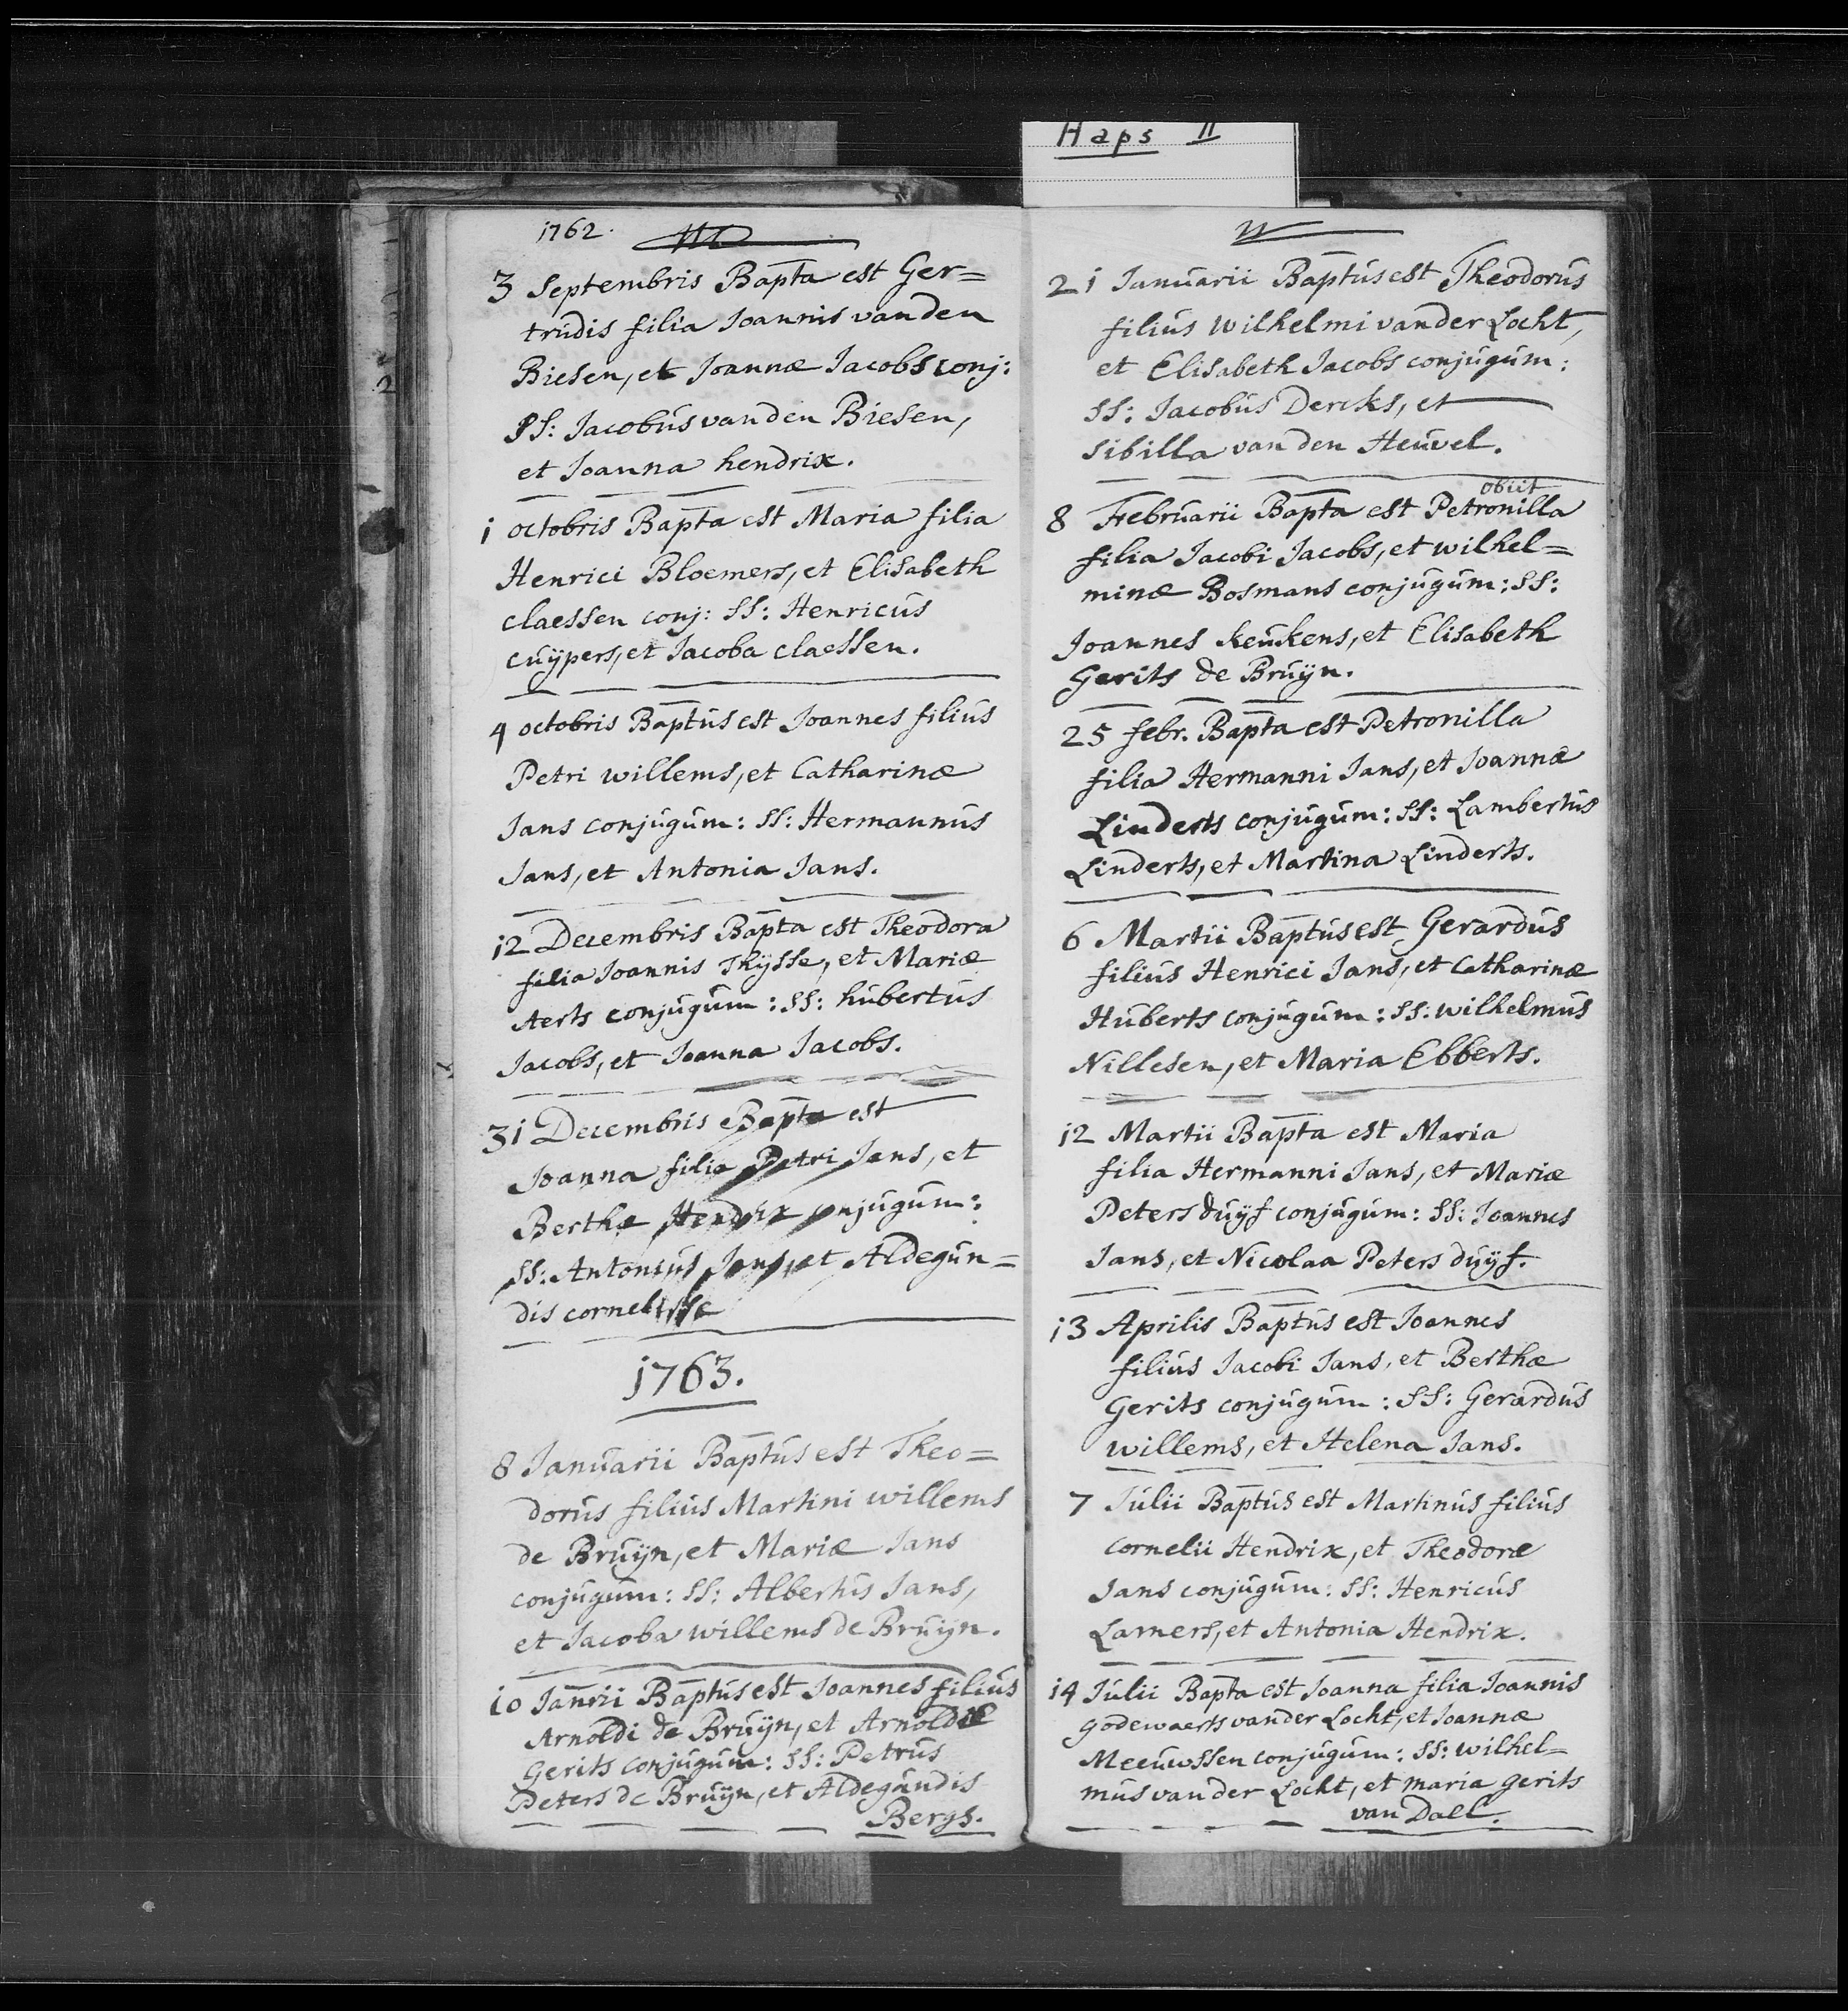 Haps II
1762.
3 Septembris Bapta est Ger=
trudis filia Joannis vanden
Biesen, et Joannæ Jacobs conj:
SS: Jacobus vanden Biesen,
et Joanna hendrix.
1 octobris Bapta est Maria filia
Henrici Bloemers, et Elisabeth
claessen conj: SS: Henricus
cuÿpers, et Jacoba claessen.
4 octobris Baptus est Joannes filius
Petri willems, et Catharinæ
Jans conjugum: SS: Hermannus
Jans, et Antonia Jans.
12 Decembris Bapta est Theodora
filia Joannis Thÿsse, et Mariæ
Aerts conjugum: SS: hubertus
Jacobs, et Joanna Jacobs.
31 Decembris Bapta est
Joanna filia Petri Jans, et
Berthæ Hendrix conjugum:
SS: Antonius Jans, et Aldegun=
dis cornelisse
1763.
8 Januarii Baptus est Theo=
dorus filius Martini willems
de Bruÿn, et Mariæ Jans
conjugum: SS: Albertus Jans,
et Jacoba willems de Bruÿn.
10 Janrii Baptus est Joannes filius
Arnoldi de Bruÿn, et Arnoldæ
Gerits conjugum: SS: Petrus
Peters de Bruÿn, et Aldegundis
Bergs.
21 Januarii Baptus est Theodorus
filius Wilhelmi vander Locht,
et Elisabeth Jacobs conjugum:
SS: Jacobus Dercks, et
Sibilla van den Heuvel.
obiit
8 Februarii Bapta est Petronilla
filia Jacobi Jacobs, et wilhel=
minæ Bosmans conjugum: SS:
Joannes keukens, et Elisabeth
Gerits de Bruÿn.
25 febr. Bapta est Petronilla
filia Hermanni Jans, et Joannæ
Linderts conjugum: SS: Lambertus
Linderts, et Martina Linderts.
6 Martii Baptus est Gerardus
filius Henrici Jans, et Catharinæ
Huberts conjugum: SS: wilhelmus
Nillesen, et Maria Ebberts.
12 Martii Bapta est Maria
filia Hermanni Jans, et Mariæ
Peters duÿf conjugum: SS: Joannes
Jans, et Nicolaa Peters duÿf.
13 Aprilis Baptus est Joannes
filius Jacobi Jans, et Berthæ
Gerits conjugum: SS: Gerardus
willems, et Helena Jans.
7 Julii Baptus est Martinus filius
cornelii Hendrix, et Theodoræ
Jans conjugum: SS: Henricus
Lamers, et Antonia Hendrix.
14 Julii Bapta est Joanna filia Joannis
godewaerts vander Locht, et Joannæ
Meeuwssen conjugum: SS: wilhel=
mus van der Locht, et maria gerits
van Dael.